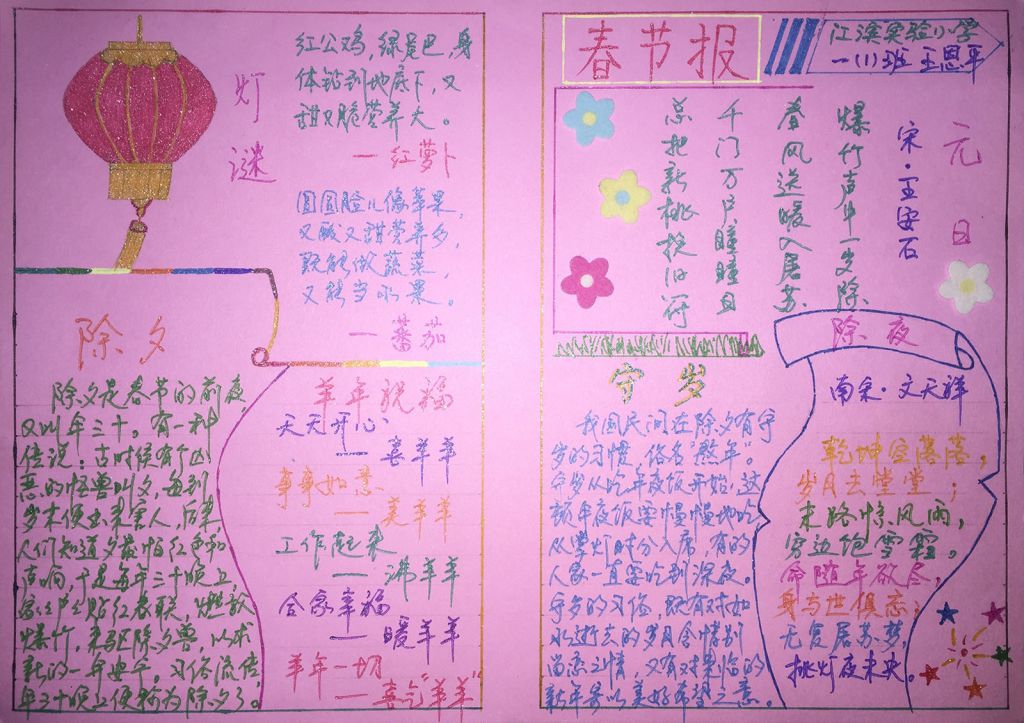 灯谜
红公鸡,绿尾巴,身
体钻到地底下,又
甜又脆营养大。
—红萝卜
圆圆脸儿像苹果,
又酸又甜营养多,
既能做蔬菜,
又能当水果。
—蕃茄
除夕
除夕是春节的前夜,
又叫年三十。有一种
传说:古时候有个凶
恶的怪兽叫夕,每到
岁末便出来害人,后来
人们知道夕最怕红色和
声响,于是每年三十晚上,
家家户户贴红春联,燃放
爆竹,来驱除夕兽,以求
新的一年安宁。习俗流传
年三十晚上便称为除夕了。
羊年祝福
天天开心
—喜羊羊
事事如意
—美羊羊
工作起来
—沸羊羊
合家幸福
—暖羊羊
羊年一切
—喜气"羊羊"
春节报
江滨实验小学
一(1)班 王恩平
元日
宋·王安石
爆竹声中一岁除
春风送暖入屠苏
千门万户瞳瞳日
总把新桃换旧符
守岁
我国民间在除夕有守
岁的习惯,俗名"熬年"。
守岁从吃年夜饭开始,这
顿年夜饭要慢慢地吃
从掌灯时分入席,有的
人家一直要吃到深夜。
守岁的习俗,既有对如
水逝去的岁月含惜别
留恋之情,又有对来临的
新年寄以美好希望之意。
除夜
南宋·文天祥
乾坤空落落,
岁月去堂堂;
末路惊风雨,
穷边饱雪霜。
命随年欲尽,
身与世俱忘;
无复屠苏梦,
挑灯夜未央。